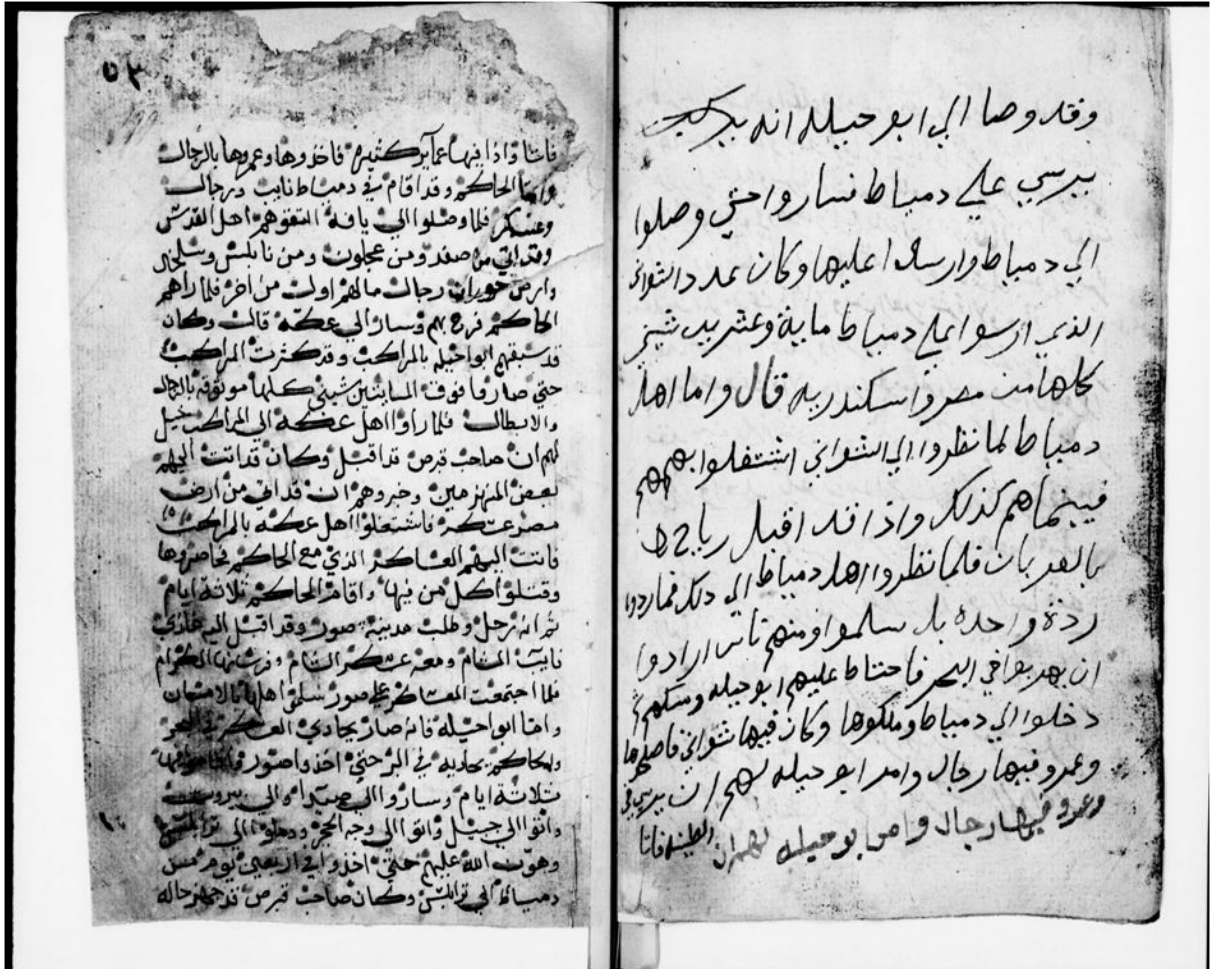 وقد وصا الي ابو حيله انه
يرسي علي دمياط فساروا حتي وصلوا
الي دمياط وارسوا عليها وكان عدد الشواني
الذي ارسوا علي دمياط ماية وعشرين شيني
كلها من مصر واسكندريه قال واما اهل
دمياط لما نظروا الي الشواني اشتغلوا بهم
فبينما هم كذلك واذا قد اقبل
بالعربان فلما نظروا اهل دمياط الي دلك فما ردوا
ردة واحده بل سلموا ومنهم ناس ارادوا
ان يهربوا في البحر فاحتاط عليهم ابو حيله ومسكهم
دخلوا الي دمياط وملكوها وكان فيها شواني فاصلحوها
وعمرو فيها رجال وامر ابو حيله لهم ان يرسي في
الطينه فاتا
وعمرو فيها رجال وامر بو حيله لهم ان
٥٢
فاتنا واذا فيها عماير كثيره فاخذوها وعمروها بالرجال
واما الحاكم وقد اقام في دمياط نايب ورجال
وعسكر فلما وصلوا الي يافه التقوهم اهل القدس
وقد اتي من صفد ومن عجلون ومن نابلس وسلخال
وارض حوران رجال مالهم اول من اخر فلما راهم
الحاكم فرح بهم وسار الي عكه قال وكان
قد سبقهم ابو احيله بالمراكب وقد كثرت المراكب
حتي صاروا فوق المايتين شيني كلها موثوقه بالرجال
والابطال فلما راوا اهل عكه الي المراكب خيل
لهم ان صاحب قبرص قد اقبل وكان قد اتت اليهم
بعض المنهزمين وخبروهم ان قد اتي من ارض
مصر عسكر فاشتغلوا اهل عكه بالمراكب
فاتت اليهم العساكر الذي مع الحاكم فحاصروها
وقتلوا كل من فيها واقام الحاكم ثلاثة ايام
ثم انه رحل وطلب مدينة صور وقد اقبل اليه غازي
نايب الشام ومعه عسكر الشام وفرسانها الكرام
فلما اجتمعت العساكر علي صور سلموا اهلها بالامان
واما ابو احيله فانه صار يحادي العسكر في البحر
والحاكم يحاديه في البر حتي اخذوا صور واقاموا فيها
ثلاثة ايام وساروا الي صيدا والي بيروت
واتوا الي جبيل واتوا الي وجه الحجر ودخلوا الي ترابلس
وهون الله عليهم حتي اخذوا في اربعين يوم من
دمياط الي ترابلس وكان صاحب قبرص قد جهز حاله